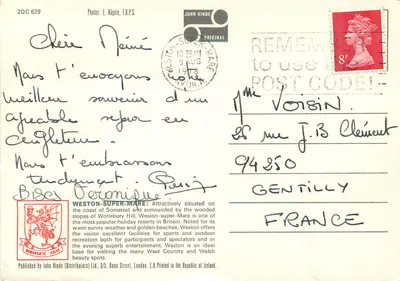 2DC 629
Photos: E. Nägele, F.R.P.S.
JOHN HINDE
ORIGINAL
WESTON-SUPER-MARE
REMEMBER
to use the
POST CODE!
8P
Chère Mémé
Nous t'envoyons notre
meilleur souvenir d'un
agréable séjour en
Angleterre.
Nous t'embrassons
tendrement.
Bises Véronique
Mme VOISIN
25 rue J.B Clément
94250
GENTILLY
FRANCE
WESTON-SUPER-MARE: Attractively situated on
the coast of Somerset and surrounded by the wooded
slopes of Worlebury Hill. Weston-super-Mare is one of
the most popular holiday resorts in Britain. Noted for its
warm sunny weather and golden beaches, Weston offers
the visitor excellent facilities for sports and outdoor
recreation both for participants and spectators and in
the evening superb entertainment. Weston is an ideal
base for visiting the many West Country and Welsh
beauty spots.
Published by John Hinde (Distributors) Ltd., 3/5, Dunn Street, London. E.8 Printed in the Republic of Ireland.